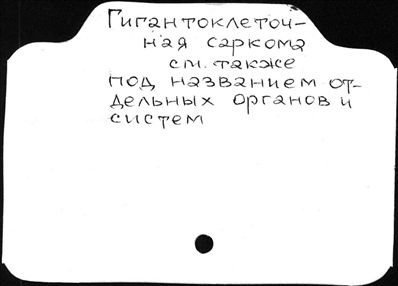 Гигантоклеточ-
ная саркома
см. также
под названием от-
дельных органов и
систем